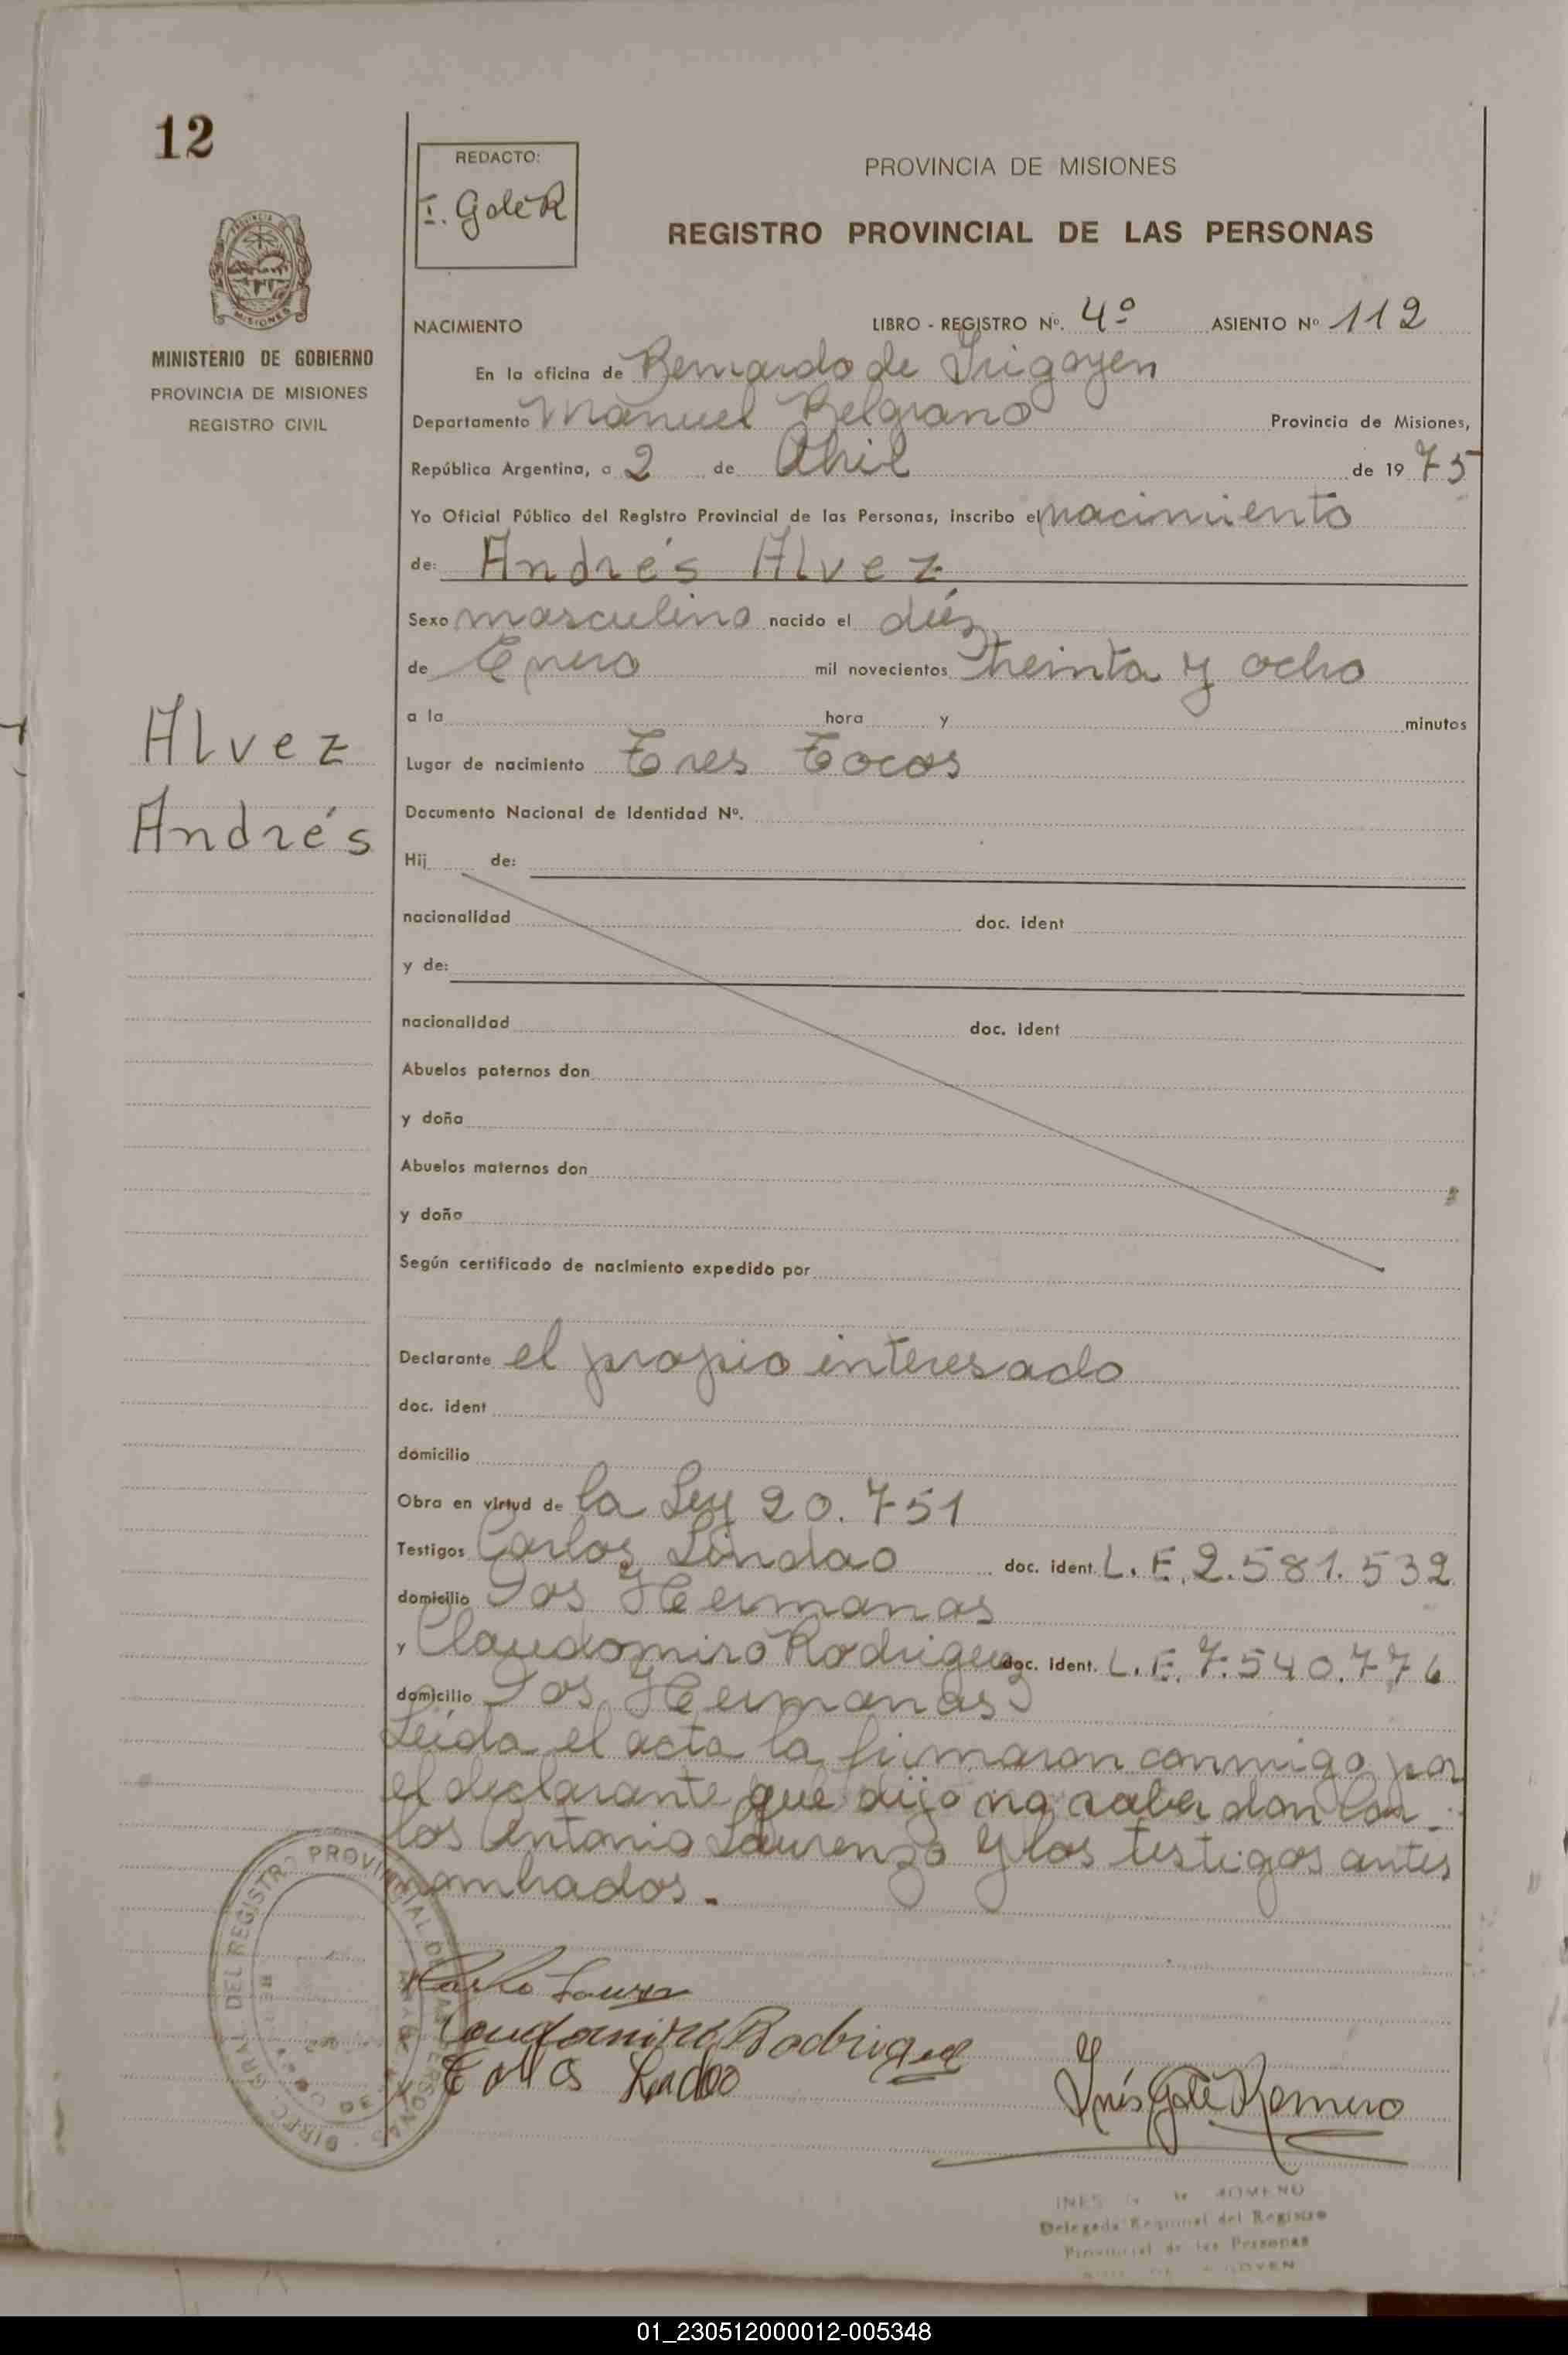 12
REDACTO:
I. Galé R
PROVINCIA DE MISIONES
REGISTRO PROVINCIAL DE LAS PERSONAS
MISIONES
MINISTERIO DE GOBIERNO
PROVINCIA DE MISIONES
REGISTRO CIVIL
NACIMIENTO LIBRO - REGISTRO Nº. 4º ASIENTO Nº 112
En la oficina de Bernardo de Irigoyen
Departamento Manuel Belgrano Provincia de Misiones,
República Argentina, a 2 de Abril de 19 75
Yo Oficial Público del Registro Provincial de las Personas, inscribo el nacimiento
de: Andrés Alvez
Sexo masculino nacido el diéz
de Enero mil novecientos treinta y ocho
a la hora y minutos
Alvez
Lugar de nacimiento Tres Tocos
Andrés
Documento Nacional de Identidad Nº.
Hij de:
nacionalidad doc. ident
y de:
nacionalidad doc. ident
Abuelos paternos don
y doña
Abuelos maternos don
y doña
Según certificado de nacimiento expedido por
Declarante el propio interesado
doc. ident
domicilio
Obra en virtud de la Ley 20.751
Testigos Carlos Lindao doc. ident. L.E. 2.581.532
domicilio Dos Hermanas
y Claudomiro Rodriguez doc. ident. L.E. 7.540.776
domicilio Dos Hermanas
Leída el acta la firmaron conmigo por
el declarante que dijo no saber don Car-
los Antonio Laurenzo y los testigos antes
nombrados.
DIREC. GRAL. DEL REGISTRO PROVINCIAL DE LAS PERSONAS
Claudomiro Rodriguez
Inés Galé Romero
INES ROMERO
Delegada Regional del Registro
Provincial de las Personas
01_230512000012-005348